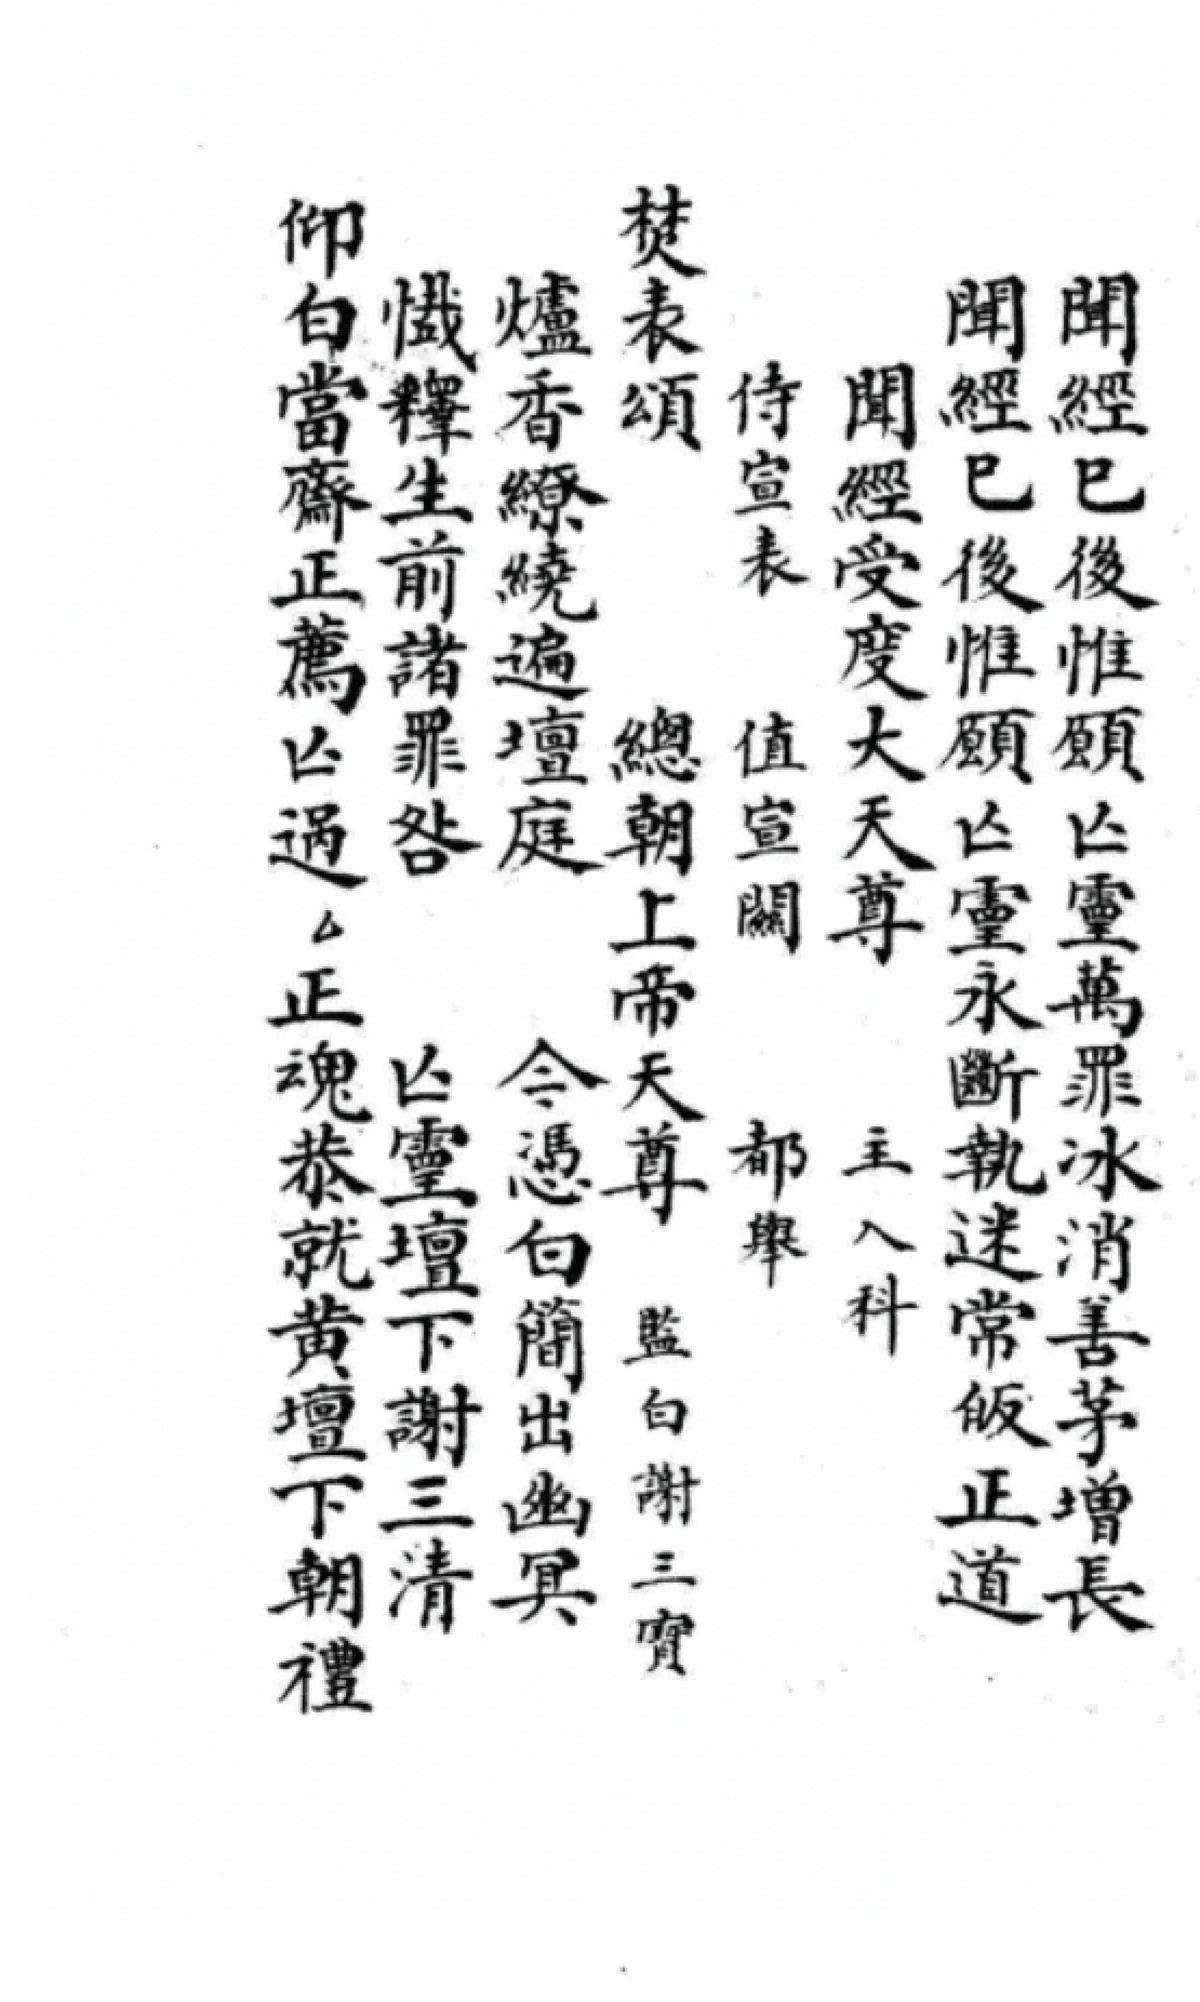 聞經已後惟願亾靈萬罪冰消善芽增長
聞經已後惟願亾靈永斷執迷常皈正道
聞經受度大天尊 主入科
侍宣表 值宣關 都舉
焚表頌 總朝上帝天尊 監白謝三寶
爐香繚繞遍壇庭 今憑白簡出幽冥
懺釋生前諸罪咎 亾靈壇下謝三清
仰白當齋正薦亾過厶正魂恭就黃壇下朝禮